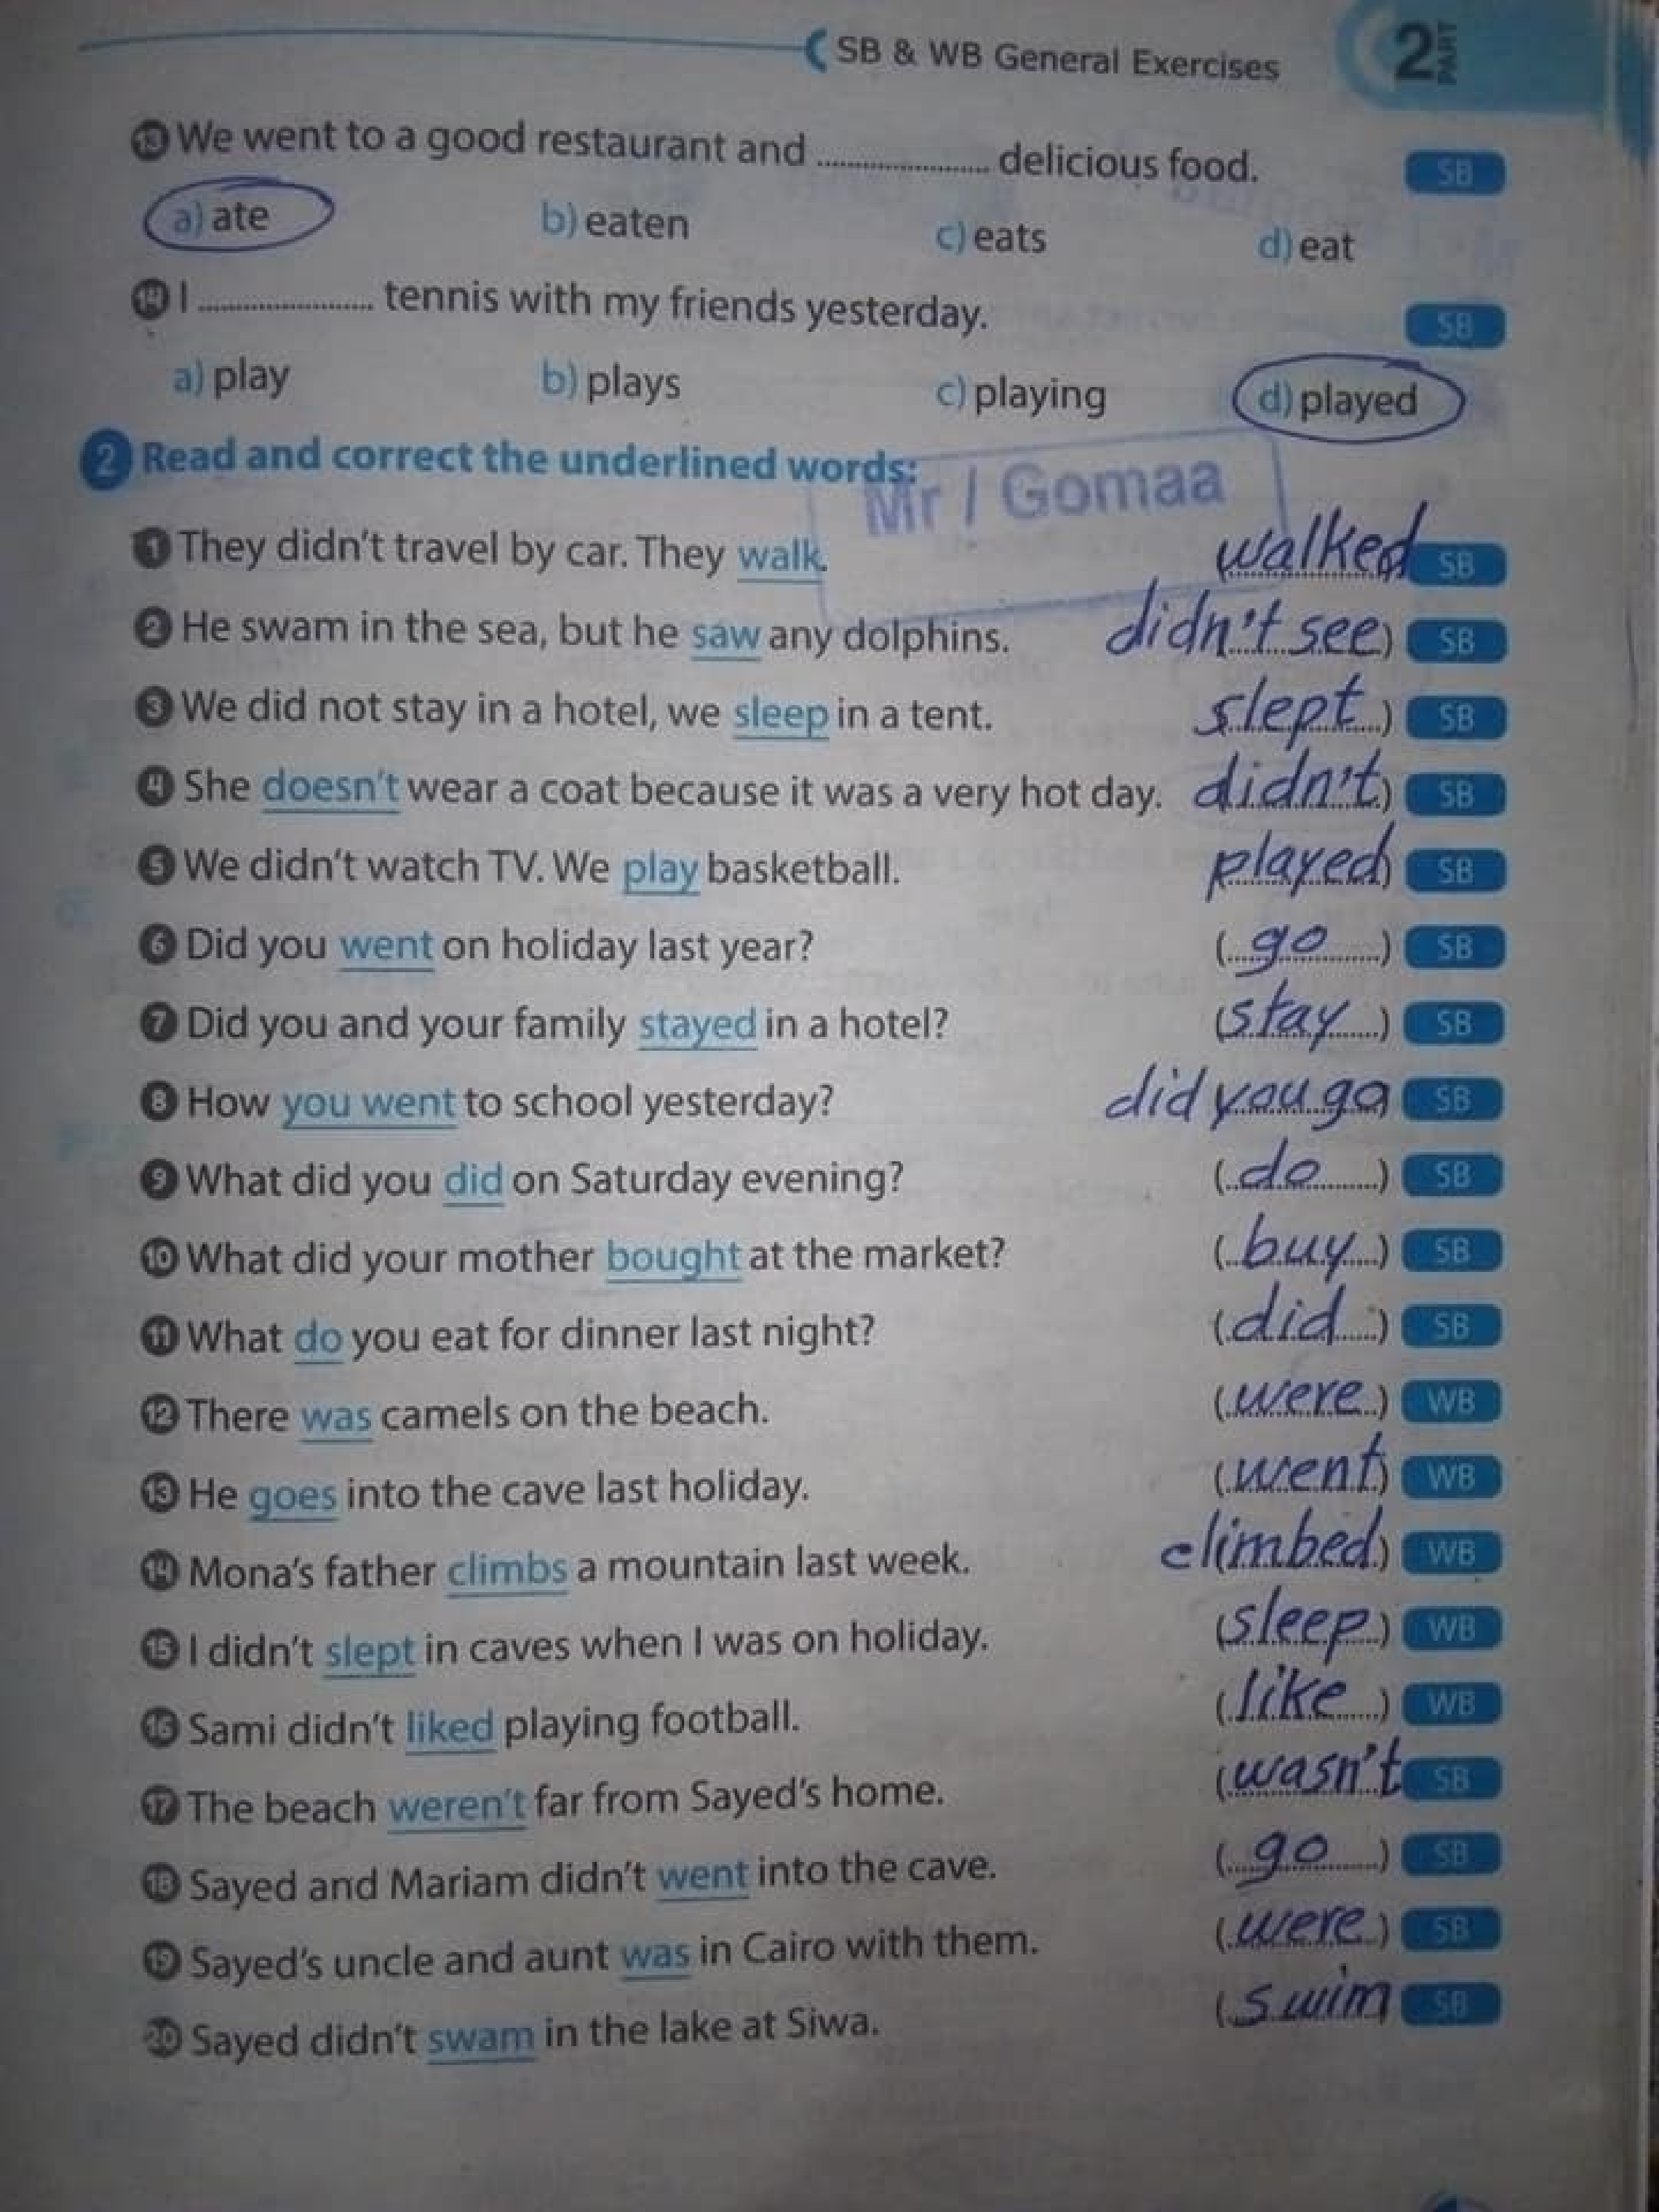 SB & WB General Exercises 2 PART
13 We went to a good restaurant and .................... delicious food. SB
a) ate b) eaten c) eats d) eat
14 I .................... tennis with my friends yesterday. SB
a) play b) plays c) playing d) played
2 Read and correct the underlined words:
Mr / Gomaa
1 They didn't travel by car. They walk. (walked) SB
2 He swam in the sea, but he saw any dolphins. didn't see) SB
3 We did not stay in a hotel, we sleep in a tent. (slept) SB
4 She doesn't wear a coat because it was a very hot day. didn't) SB
5 We didn't watch TV. We play basketball. played) SB
6 Did you went on holiday last year? (go) SB
7 Did you and your family stayed in a hotel? (stay) SB
8 How you went to school yesterday? did you go SB
9 What did you did on Saturday evening? (do) SB
10 What did your mother bought at the market? (buy) SB
11 What do you eat for dinner last night? (did) SB
12 There was camels on the beach. (were) WB
13 He goes into the cave last holiday. (went) WB
14 Mona's father climbs a mountain last week. climbed) WB
15 I didn't slept in caves when I was on holiday. (sleep) WB
16 Sami didn't liked playing football. (like) WB
17 The beach weren't far from Sayed's home. (wasn't SB
18 Sayed and Mariam didn't went into the cave. (go) SB
19 Sayed's uncle and aunt was in Cairo with them. (were) SB
20 Sayed didn't swam in the lake at Siwa. (swim SB